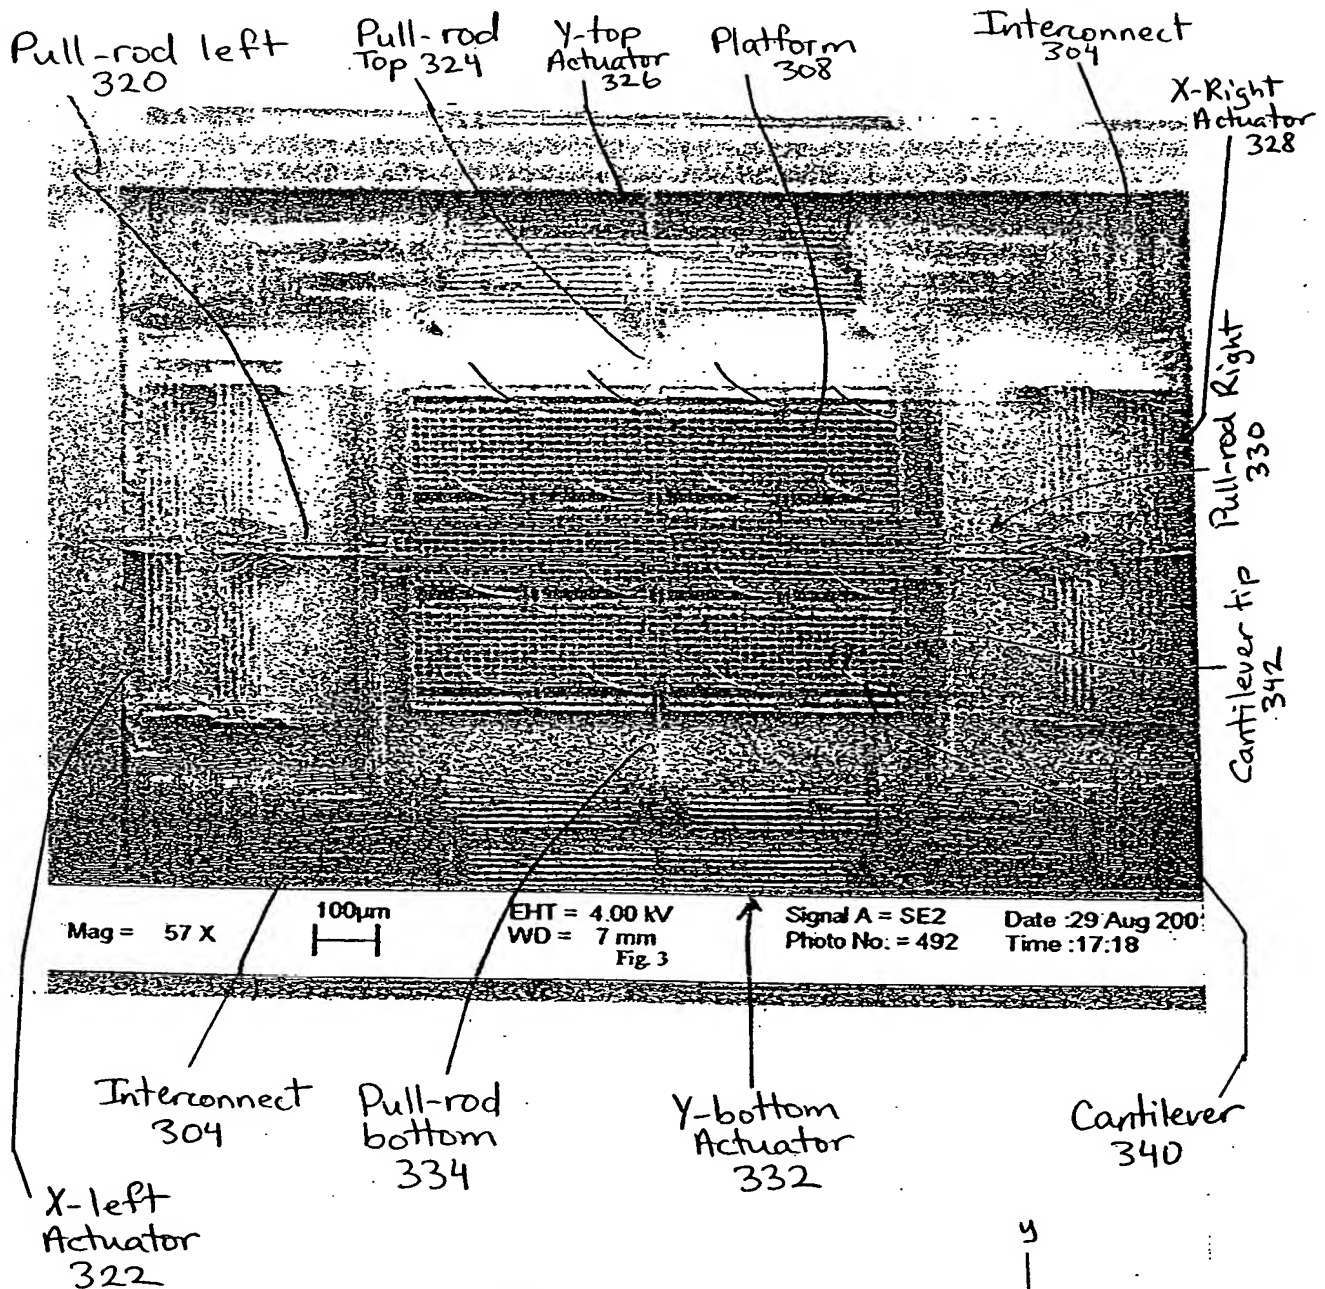 Pull-rod left
320
Pull-rod
Top 324
Y-top
Actuator
326
Platform
308
Interconnect
304
X-Right
Actuator
328
Pull-rod Right
330
Cantilever tip
342
Mag = 57 X
100µm
EHT = 4.00 kV
WD = 7 mm
Fig. 3
Signal A = SE2
Photo No. = 492
Date :29 Aug 200
Time :17:18
Interconnect
304
Pull-rod
bottom
334
Y-bottom
Actuator
332
Cantilever
340
X-left
Actuator
322
y